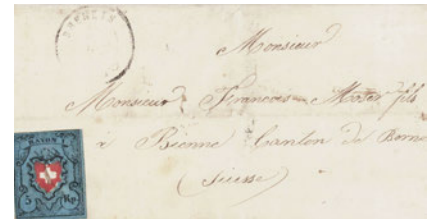 Monsieur
Monsieur Francois Moser fils
à Bienne Canton de Berne
(Suisse)
RAYON
5 Rp.